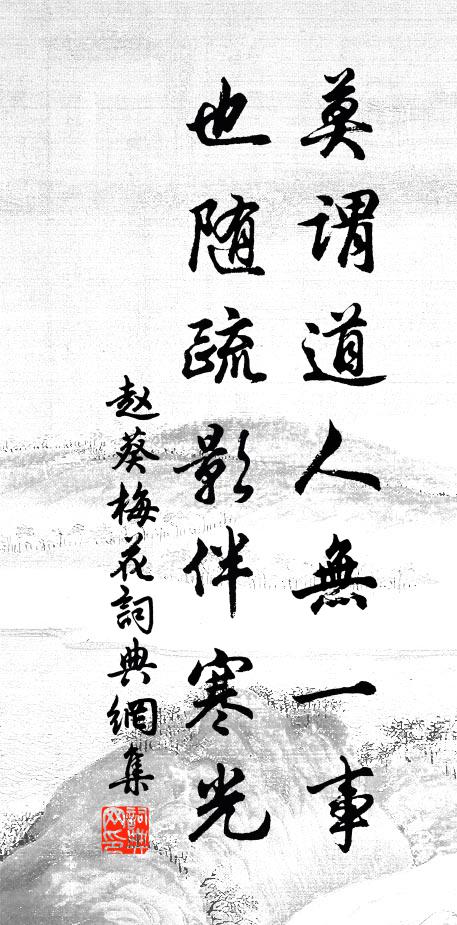 莫謂道人無一事
也随疏影伴寒光
赵葵梅花詞典網集